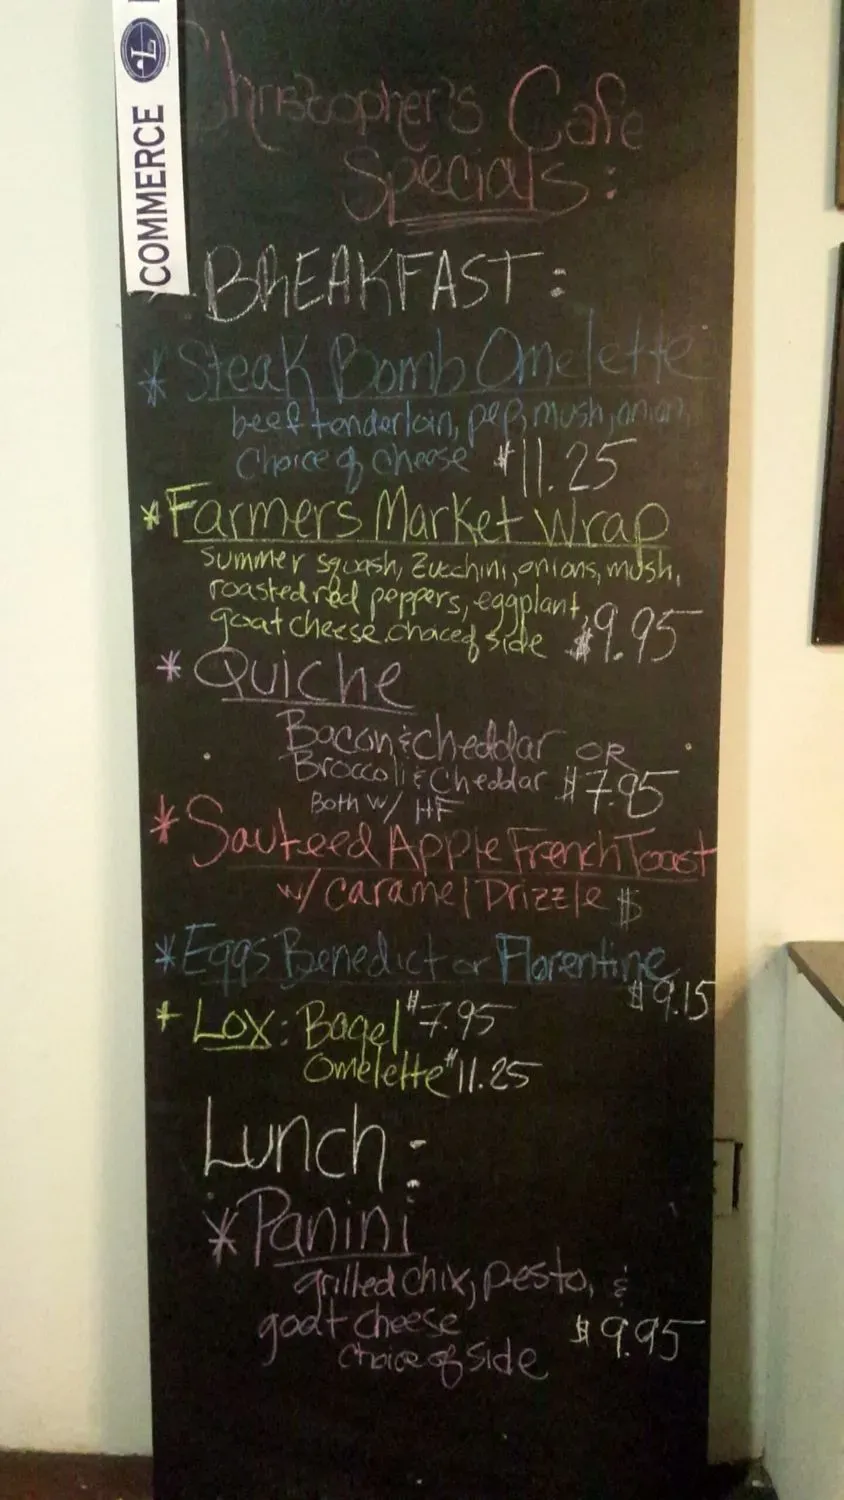 COMMERCE
Christopher's Cafe
Specials:
BREAKFAST:
* Steak Bomb Omelette
beef tenderloin, pep, mush, onion,
choice of cheese $11.25
* Farmers Market Wrap
summer squash, zucchini, onions, mush,
roasted red peppers, eggplant,
goat cheese. choice of side $9.95
* Quiche
Bacon & cheddar OR
Broccoli & Cheddar $7.95
Both w/ HF
* Sauteed Apple French Toast
w/ caramel Drizzle $
* Eggs Benedict or Florentine
$9.15
+ Lox: Bagel $7.95
Omelette $11.25
Lunch:
* Panini
grilled chix, pesto, &
goat cheese $9.95
choice of side